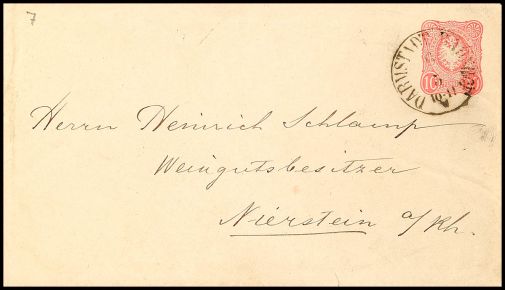 7
10
DARMSTADT BAHNHOF
Herrn Heinrich Schlamp
Weingutsbesitzer
Nierstein a/Rh.